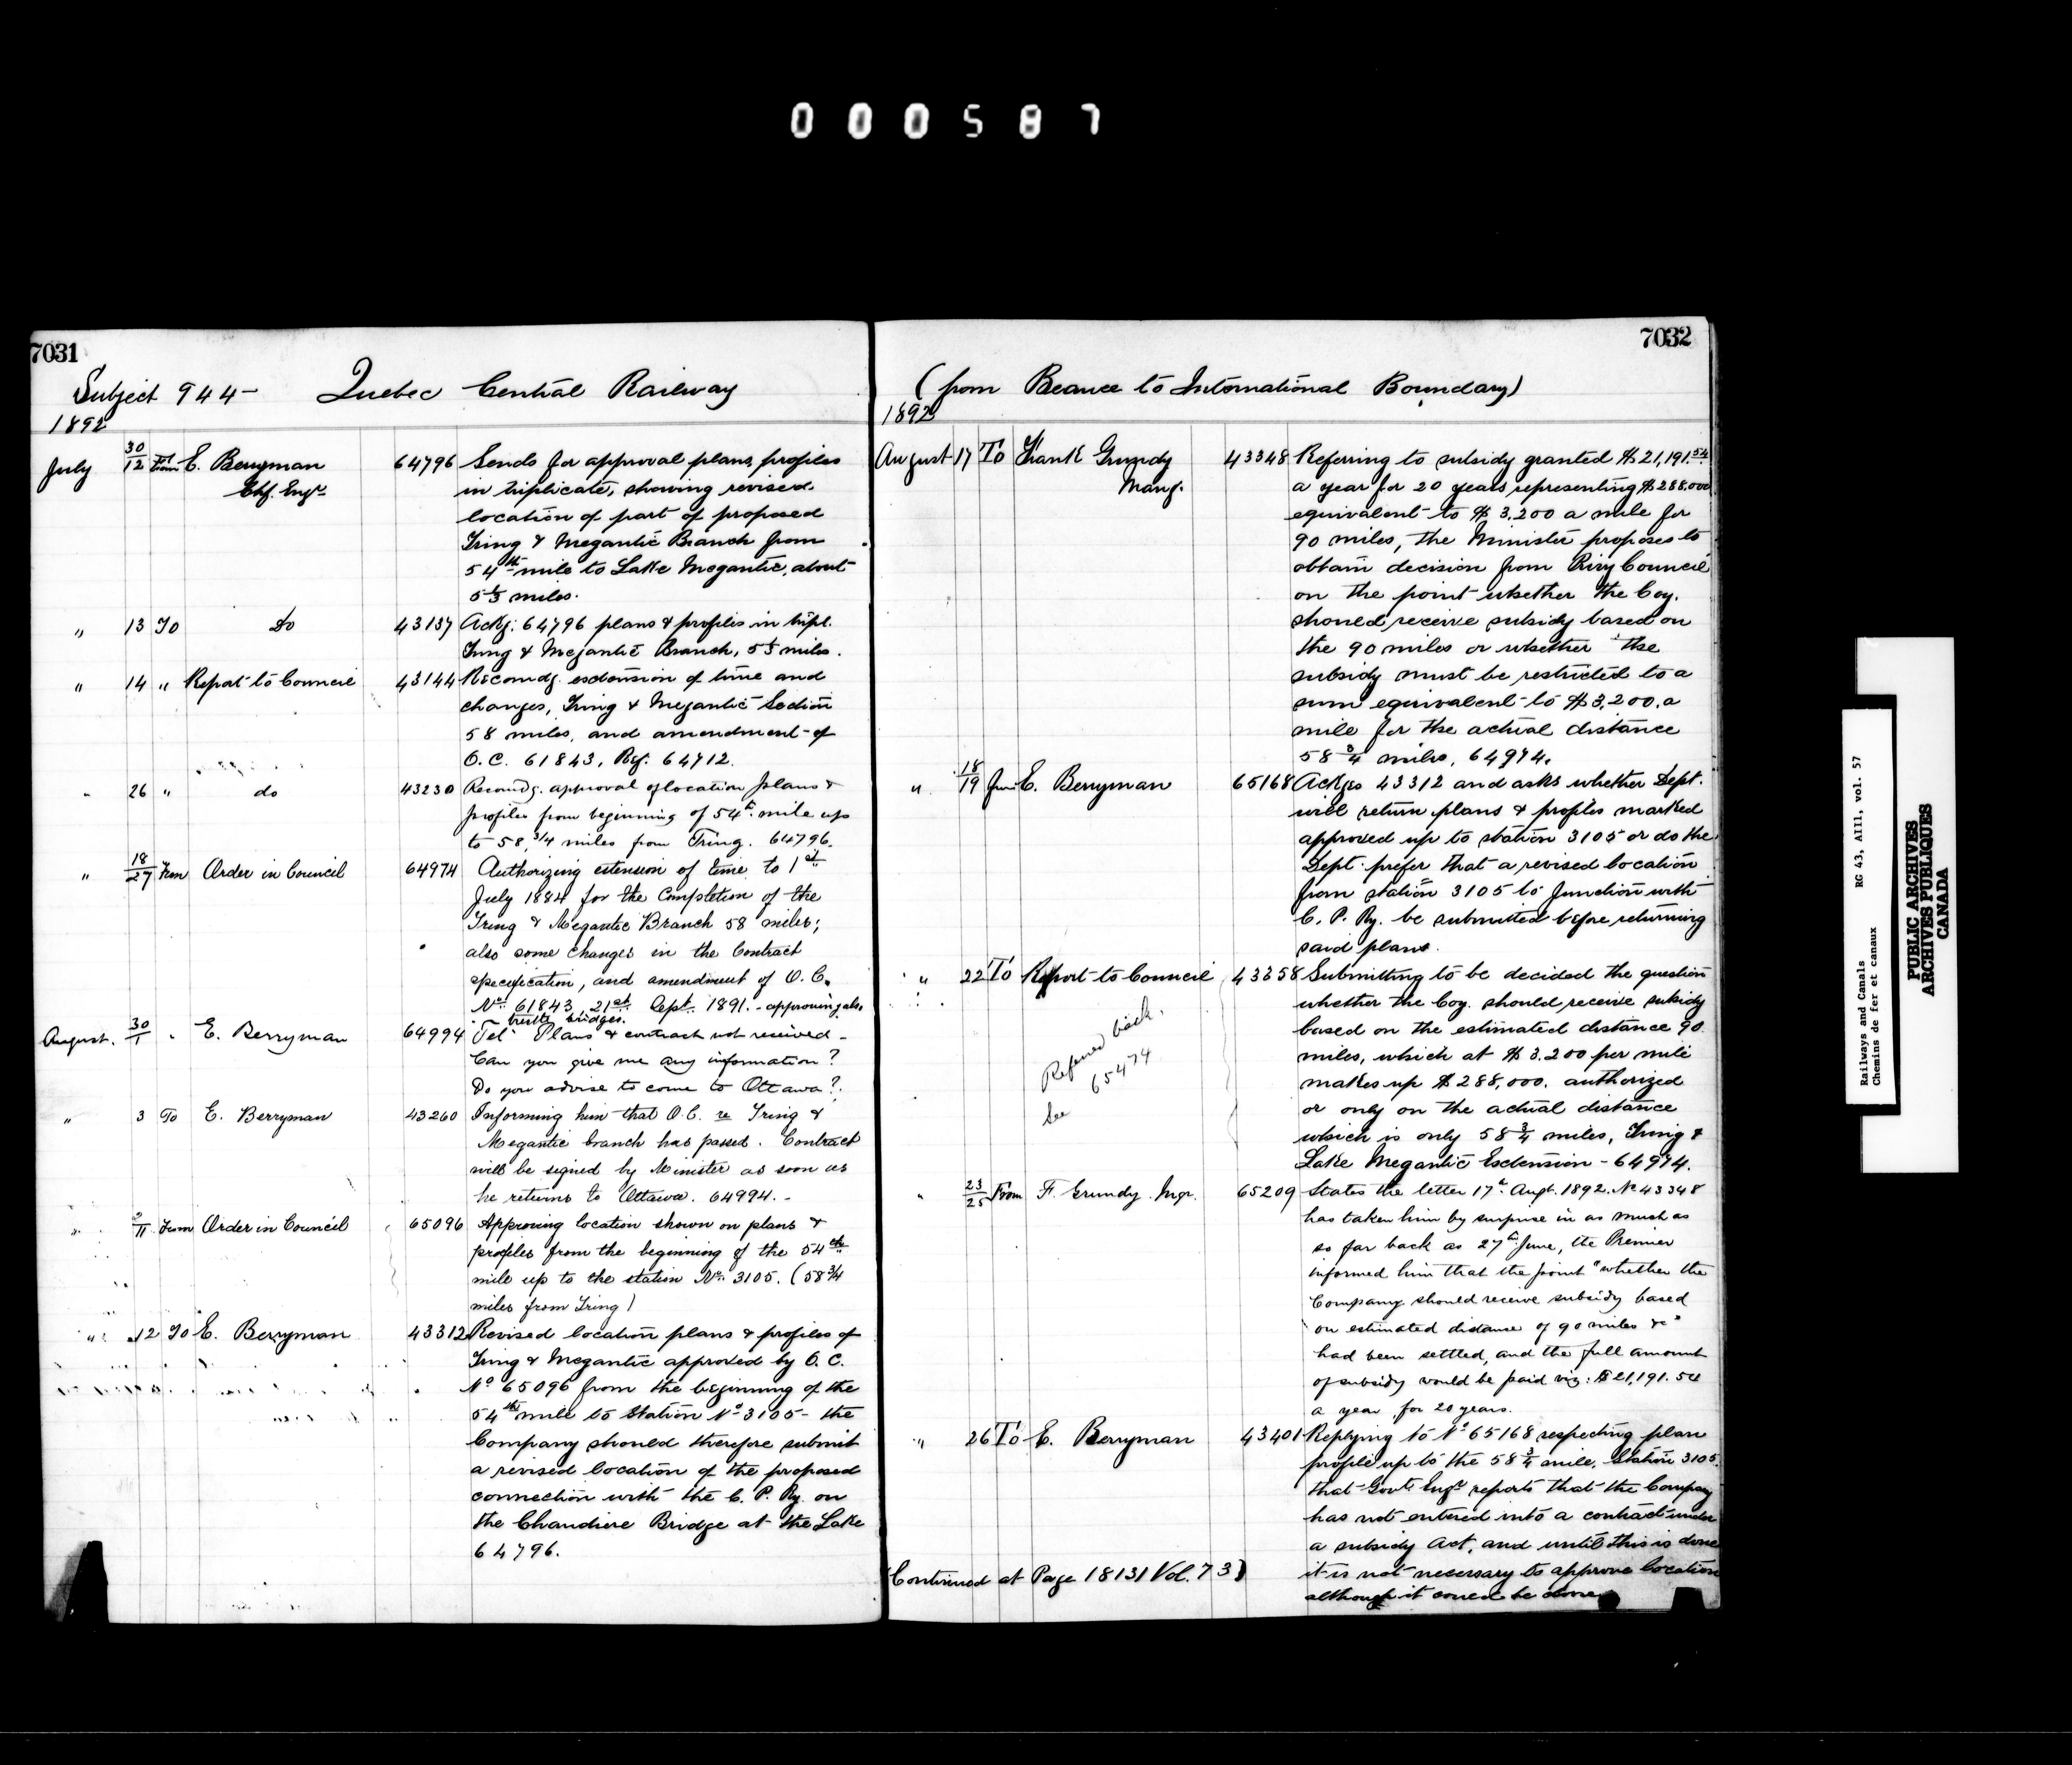 000587
7031
Subject 944 - Quebec Central Railway
1892
July 30/12 From E. Berryman 64796 Sends for approval plans, profiles
Chf. Engr. in triplicate, showing revised
location of part of proposed
Tring & Megantic Branch from
54th mile to Lake Megantic, about
5 1/3 miles.
" 13 To Do 43137 Ackg: 64796 plans & profiles in tripl.
Tring & Megantic Branch, 5 1/3 miles.
" 14 " Report to Council 43144 Recomdg. extension of time and
changes, Tring & Megantic Section
58 miles, and amendment of
O.C. 61843, Ref. 64712.
" 26 " do 43230 Recomdg. approval of location plans &
profiles from beginning of 54th mile up
to 58 3/4 miles from Tring. 64796.
" 18/27 From Order in Council 64974 Authorizing extension of time to 1st
July 1884 for the Completion of the
Tring & Megantic Branch 58 miles;
also some changes in the Contract
specification, and amendment of O.C.
No. 61843 21st Sept. 1891. - approving also
trestle bridges.
August. 30/1 " E. Berryman 64994 Tel. Plans & contract not received -
Can you give me any information?
Do you advise to come to Ottawa?
" 3 To E. Berryman 43260 Informing him that O.C. re Tring &
Megantic branch has passed. Contract
will be signed by Minister as soon as
he returns to Ottawa. 64994. -
" 9/11 From Order in Council 65096 Approving location shown on plans &
profiles from the beginning of the 54th
mile up to the station No. 3105. (58 3/4
miles from Tring)
" 12 To E. Berryman 43312 Revised location plans & profiles of
Tring & Megantic approved by O.C.
No 65096 from the beginning of the
54th mile to Station No 3105 - the
Company should therefore submit
a revised location of the proposed
connection with the C. P. Ry. on
the Chaudiere Bridge at the Lake
64796.
7032
(from Beauce to International Boundary)
1892
August 17 To Frank Grundy 43348 Referring to subsidy granted $21,191.54
Mang. a year for 20 years representing $288,000
equivalent to $3,200 a mile for
90 miles, the Minister proposes to
obtain decision from Privy Council
on the point whether the Coy.
should receive subsidy based on
the 90 miles or whether the
subsidy must be restricted to a
sum equivalent to $3,200. a
mile for the actual distance
58 3/4 miles, 64974.
" 18/19 From E. Berryman 65168 Ackges 43312 and asks whether Dept.
will return plans & profiles marked
approved up to station 3105 or do the
Dept. prefer that a revised location
from station 3105 to Junction with
C. P. Ry. be submitted before returning
said plans.
" 22 To Report to Council 43358 Submitting to be decided the question
whether the Coy. should receive subsidy
based on the estimated distance 90
miles, which at $3.200 per mile
makes up $288,000. authorized
or only on the actual distance
which is only 58 3/4 miles, Tring &
Lake Megantic Extension - 64974.
Referred back.
See 65474
" 23/25 From F. Grundy Mgr. 65209 States the letter 17th Augt. 1892. No 43348
has taken him by surprise in as much as
so far back as 27th June, the Premier
informed him that the point "whether the
Company should receive subsidy based
on estimated distance of 90 miles &c"
had been settled, and the full amount
of subsidy would be paid viz: $21,191.54
a year for 20 years.
" 26 To E. Berryman 43401 Replying to No 65168 respecting plan
profile up to the 58 3/4 mile, Station 3105.
that Govt. Engr. reports that the Company
has not entered into a contract under
a subsidy Act, and until this is done
it is not necessary to approve location
although it could be done
(Continued at Page 18131 Vol. 73)
Railways and Canals RG 43, AIII, vol. 57
Chemins de fer et canaux
PUBLIC ARCHIVES
ARCHIVES PUBLIQUES
CANADA